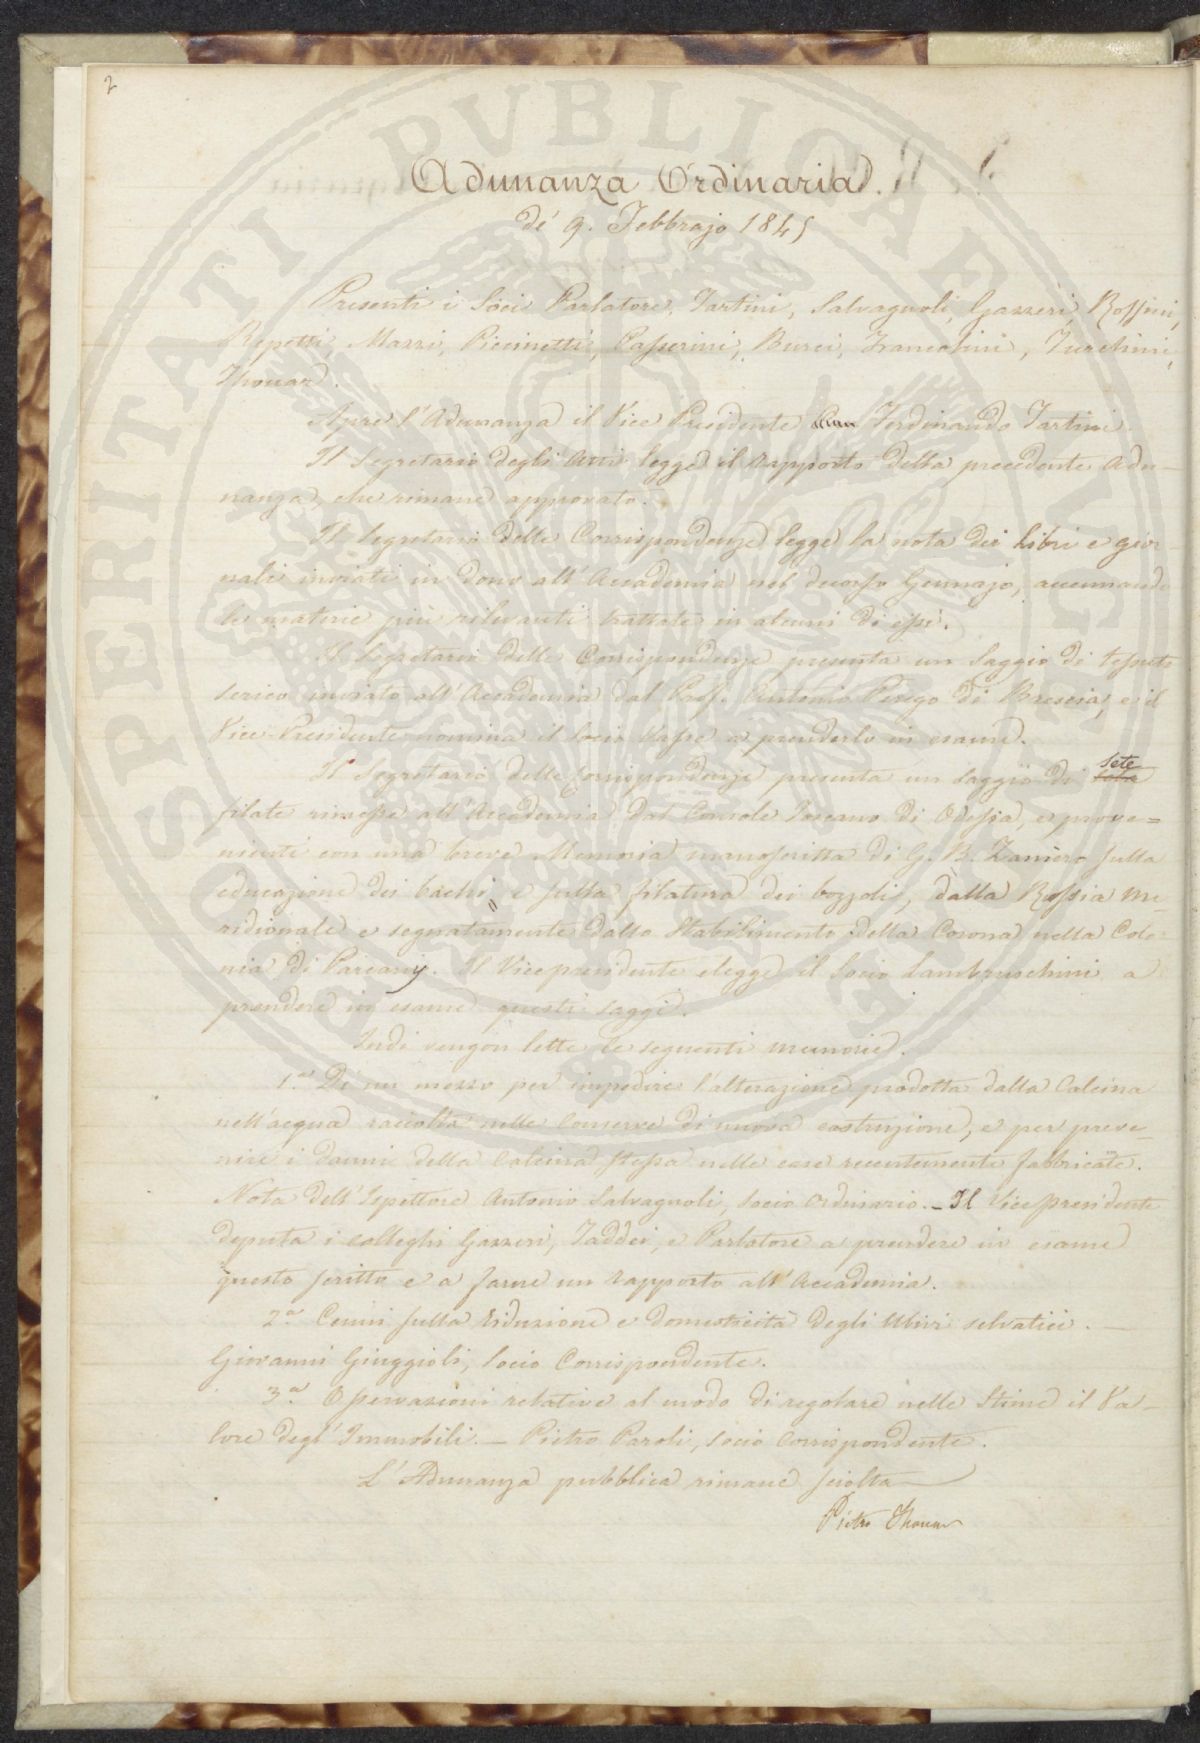 2
Adunanza Ordinaria.
de' 9. Febbrajo 1845
Presenti i Soci Parlatore, Tartini, Salvagnoli, Gazzeri, Rossini,
Repetti, Mazzi, Piccinetti, Passerini, Burci, Francolini, Turchini,
Thouar.
Apre l'Adunanza il Vice Presidente Ferdinando Tartini.
Il Segretario degli Atti legge il rapporto della precedente Adu-
nanza, che rimane approvato.
Il Segretario delle Corrispondenze legge la nota dei Libri e gior-
nali inviati in dono all'Accademia nel decorso Gennajo, accennando
le materie più rilevanti trattate in alcuni di essi.
Il Segretario delle Corrispondenze presenta un Saggio di tessuto
serico inviato all'Accademia dal Prof. Antonio Perego di Brescia, e il
Vice-Presidente nomina il Socio a prenderlo in esame.
Il Segretario delle Corrispondenze presenta un saggio di sete
filate rimesse all'Accademia dal Console Toscano di Odessa, e prove=
nienti con una breve Memoria manoscritta di G. B. Zaniero sulla
educazione dei bachi e sulla filatura dei bozzoli, dalla Russia me-
ridionale e segnatamente dallo Stabilimento della Corona nella Colo-
nia di Parcany. Il Vicepresidente elegge il Socio Lambruschini a
prendere in esame questi saggi.
Indi vengon lette le seguenti memorie.
1.a Di un mezzo per impedire l'alterazione prodotta dalla Calcina
nell'acqua raccolta nelle Conserve di nuova costruzione, e per preve-
nire i danni della Calcina stessa nelle case recentemente fabbricate.
Nota dell'Ispettore Antonio Salvagnoli, Socio Ordinario. - Il Vicepresidente
deputa i colleghi Gazzeri, Taddei, e Parlatore a prendere in esame
questo scritto e a farne un rapporto all'Accademia.
2.a Cenni sulla riduzione e domesticità degli Ulivi selvatici. —
Giovanni Giuggioli, Socio Corrispondente.
3.a Osservazioni relative al modo di regolare nelle Stime il Va-
lore degl'Immobili. — Pietro Paroli, Socio Corrispondente.
L'Adunanza pubblica rimane sciolta —
Pietro Thouar
SPERITATI PVBLICAE